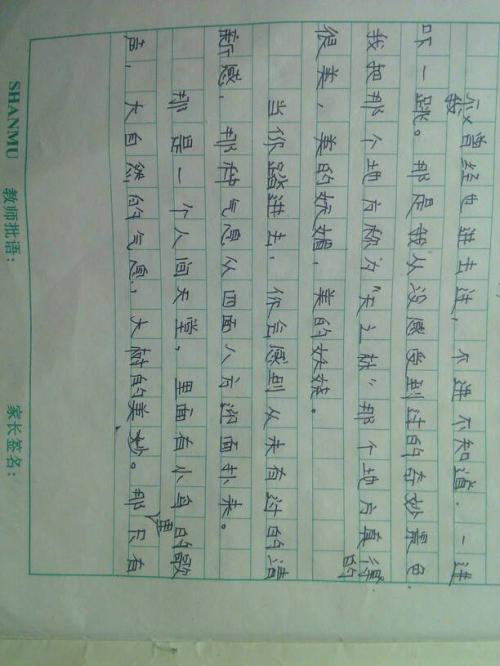 我曾经也进去过,不进不知道,一进
吓一跳。那是我从没感受到过的奇妙景色
我把那个地方称为“天之林”那个地方真的
很美,美的妖媚,美的妖娆。
当你踏进去,你会感到从未有过的清
新感,那种气息从四面八方迎面扑来。
那是一个人间天堂,里面有小鸟的歌
声,大自然的气息,大树的美妙。那里只有
SHANMU 教师批语: 家长签名: